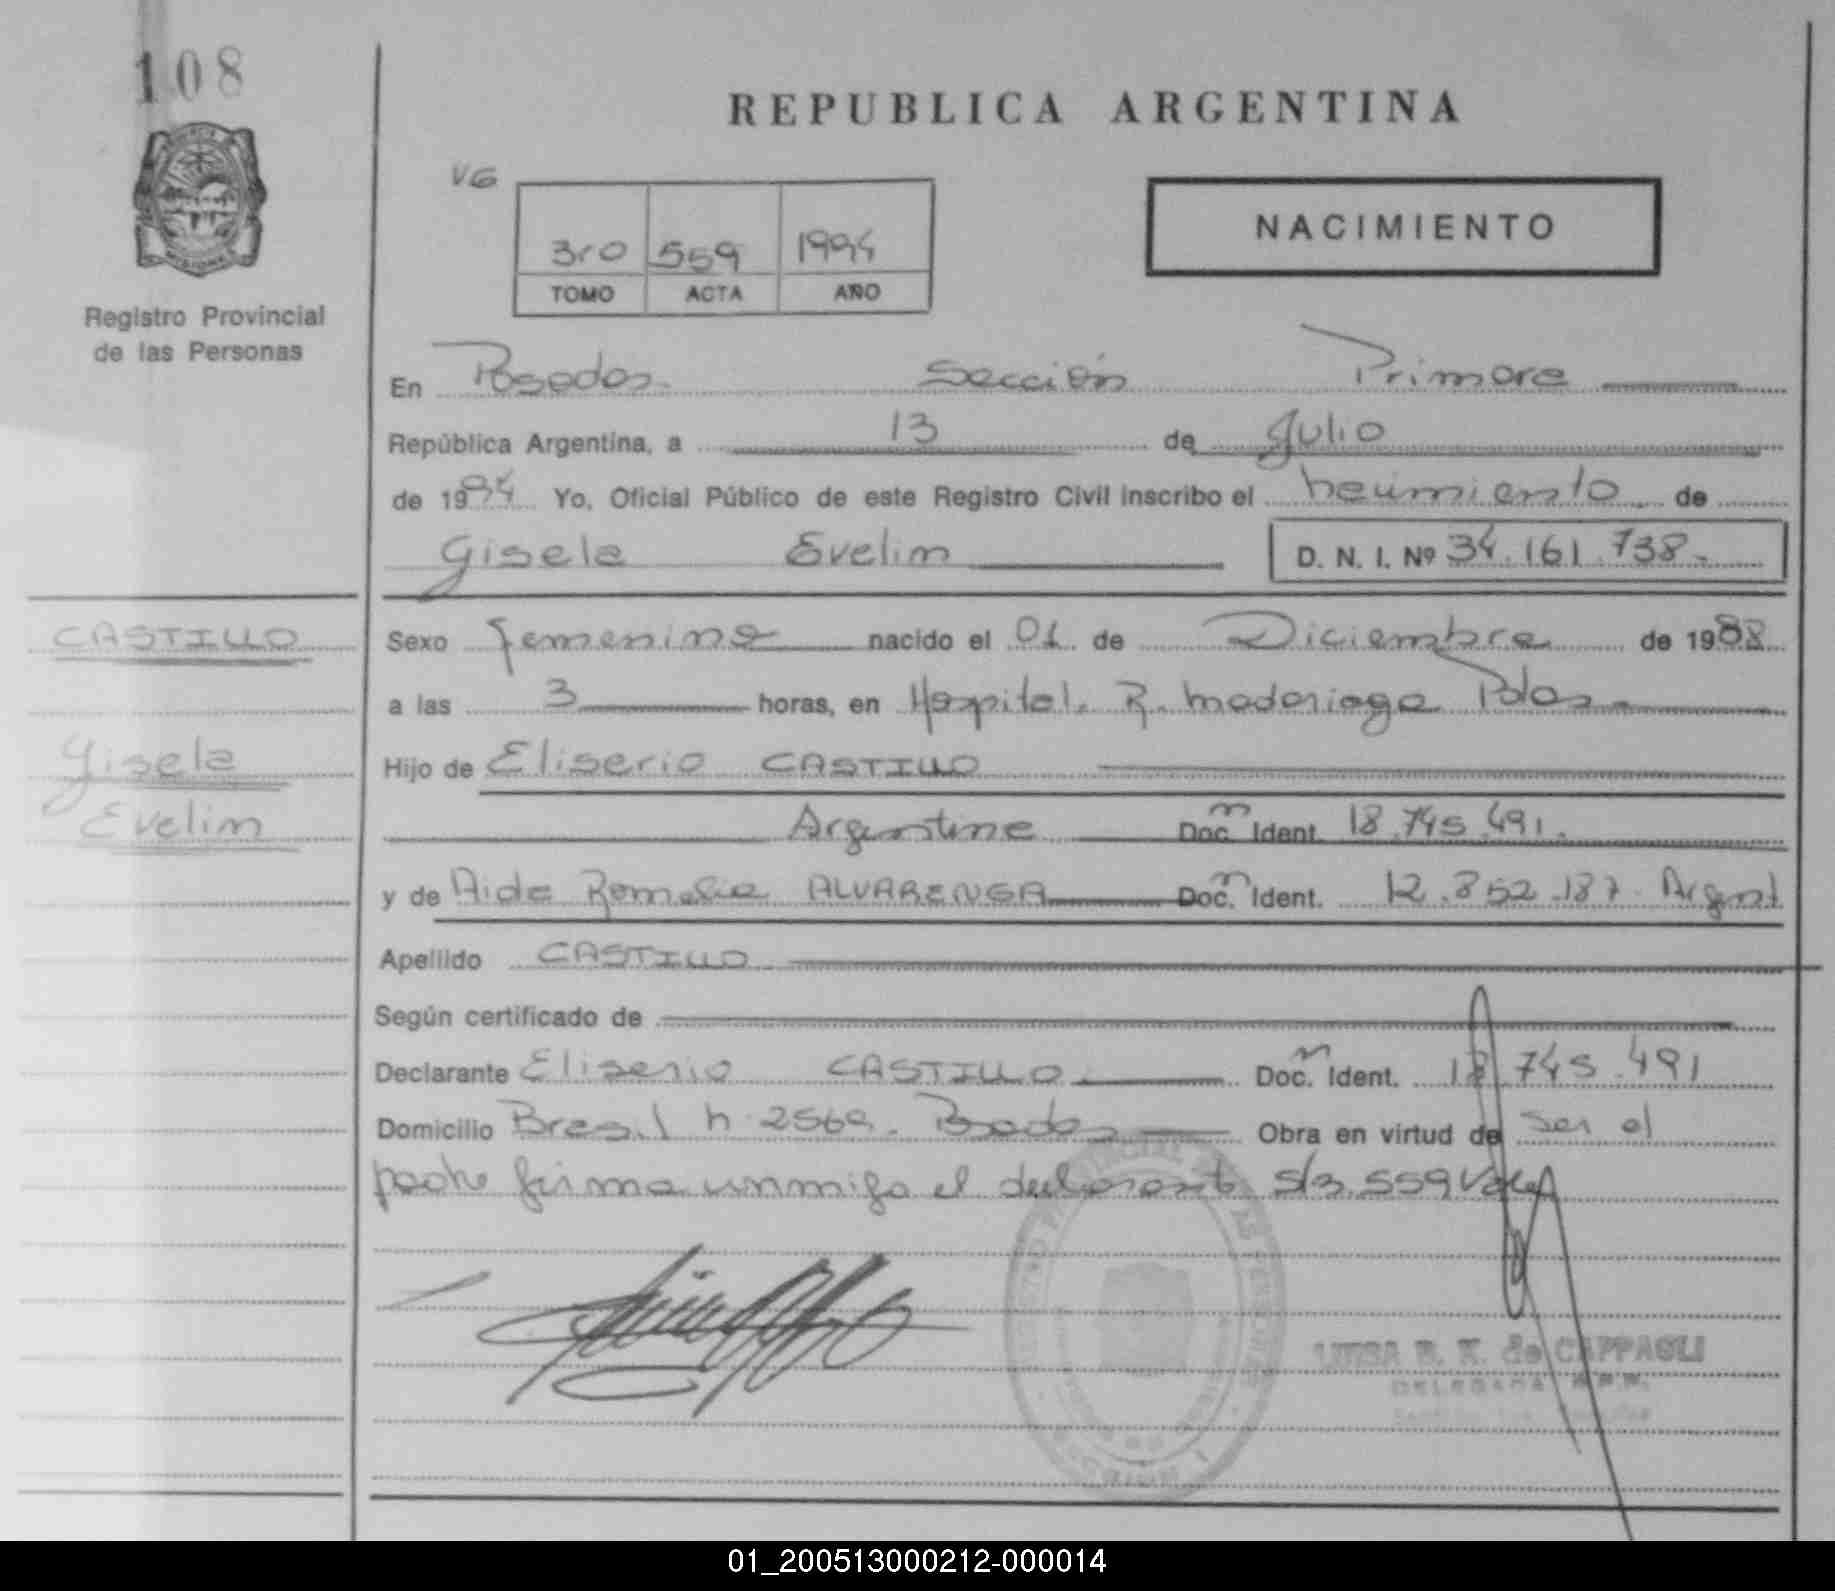 108
REPUBLICA ARGENTINA
VG
NACIMIENTO
3ro 559 1994
TOMO ACTA AÑO
Registro Provincial
de las Personas
En Posadas Sección Primera
República Argentina, a 13 de Julio
de 1994 Yo, Oficial Público de este Registro Civil inscribo el nacimiento de
Gisela Evelim D. N. I. Nº 34.161.738.-
CASTILLO
Sexo femenino nacido el 01 de Diciembre de 1988
a las 3 horas, en Hospital. R. Madariaga Pdas.
Gisela
Evelim
Hijo de Eliserio CASTILLO
Argentino Doc. Ident. 18.745.491.
y de Aida Romelia ALVARENGA Doc. Ident. 12.852.187. Argent
Apellido CASTILLO
Según certificado de
Declarante Eliserio CASTILLO Doc. Ident. 18.745.491
Domicilio Brasil n 2569. Posadas Obra en virtud de ser el
padre firma conmigo el declarante S/R 559 Vale
LUISA B. K. de CAPPAGLI
DELEGADA R.P.P.
01_200513000212-000014